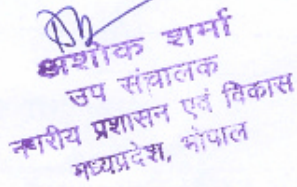 अशोक शर्मा
उप संचालक
नगरीय प्रशासन एवं विकास
मध्यप्रदेश, भोपाल